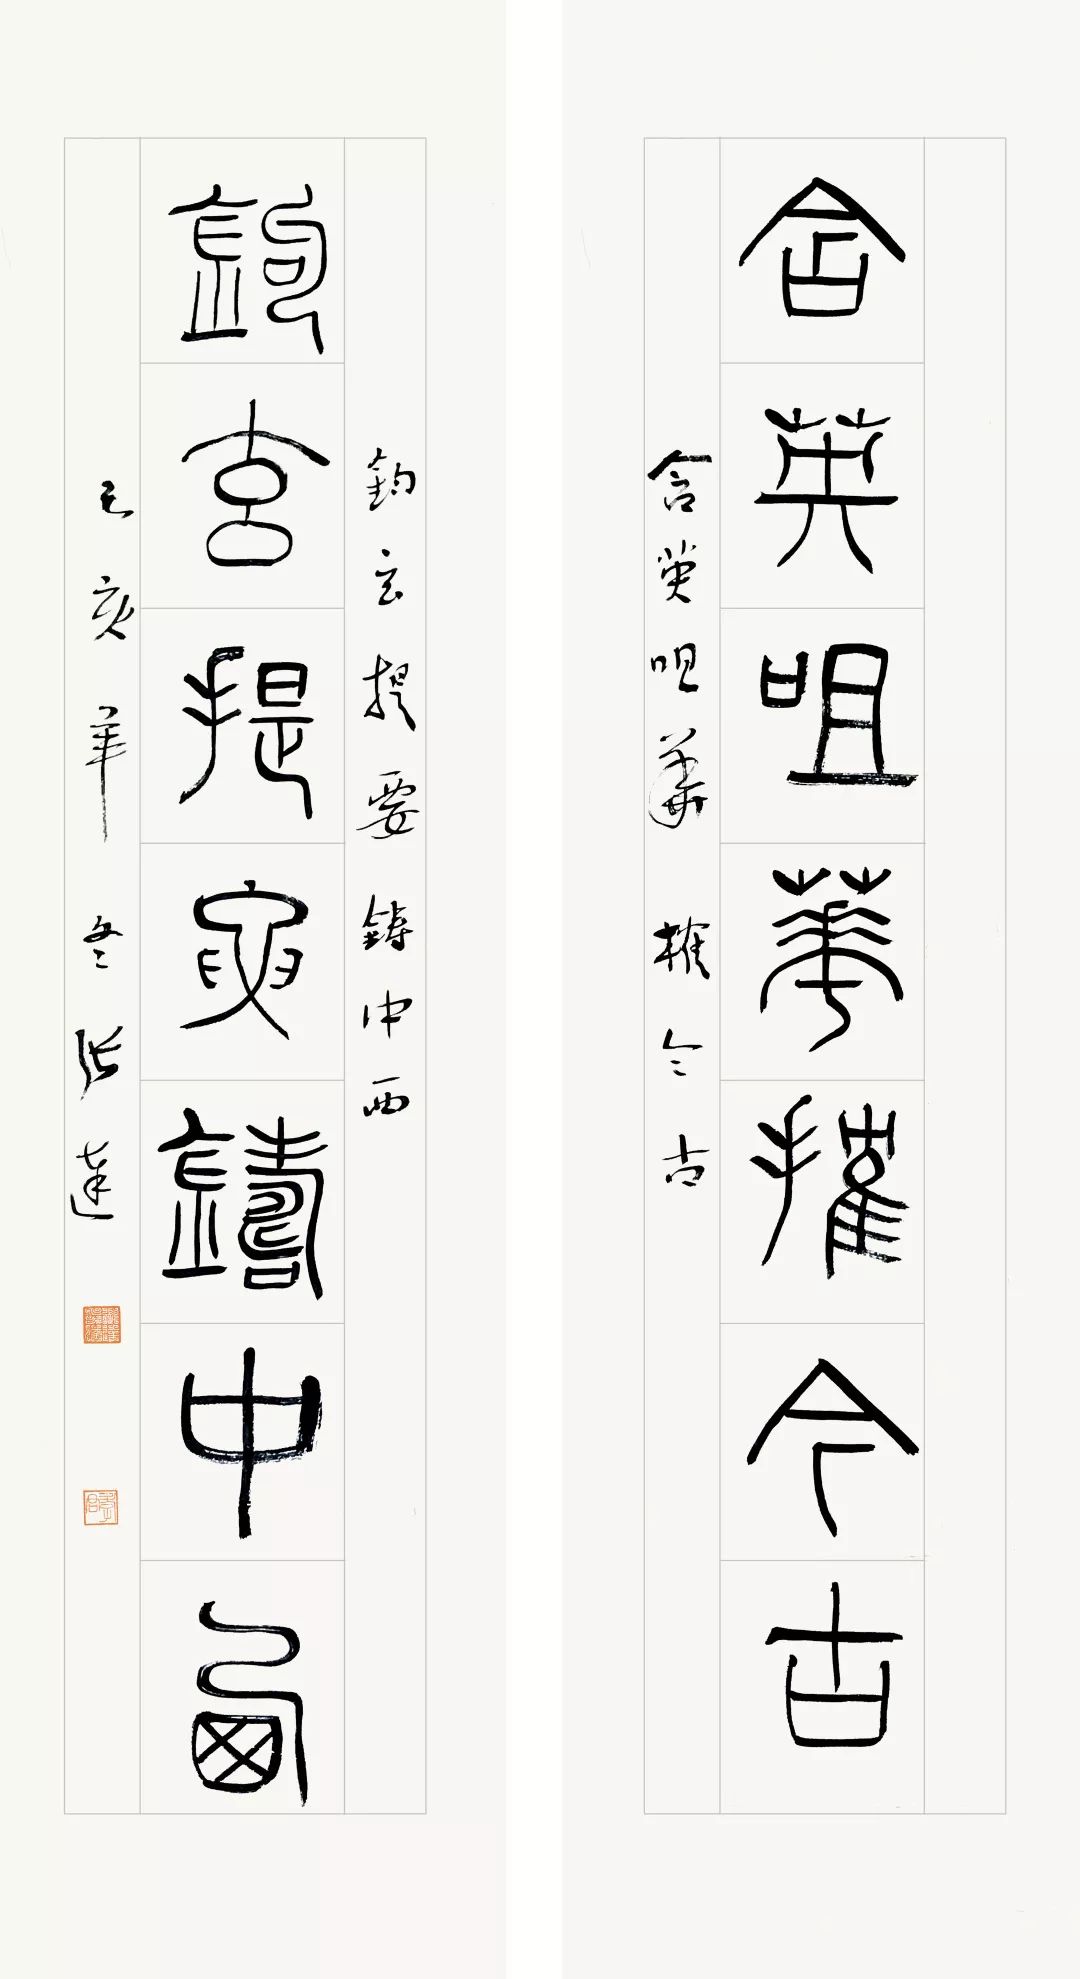 含英咀華搉今古
含英咀華搉今古
鉤玄提要鑄中西
鉤玄提要鑄中西
己亥年冬張達